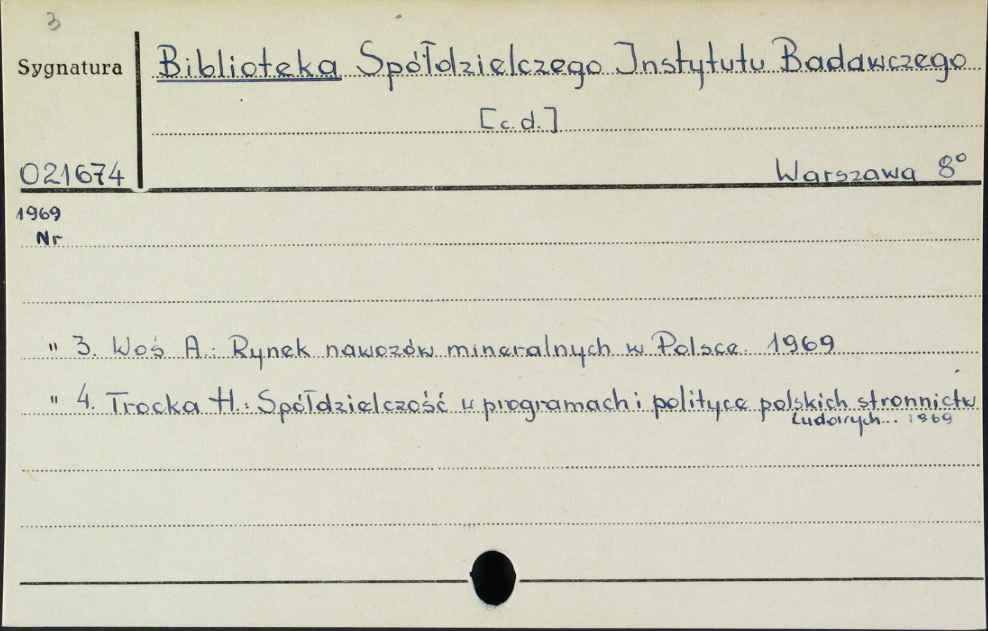 3
Sygnatura
Biblioteka Spółdzielczego Instytutu Badawczego
[c.d.]
021674
Warszawa 8°
1969
Nr
" 3. Woś A.: Rynek nawozów mineralnych w Polsce 1969
" 4. Trocka H.: Spółdzielczość w programach i polityce polskich stronnictw
Ludowych... 1969